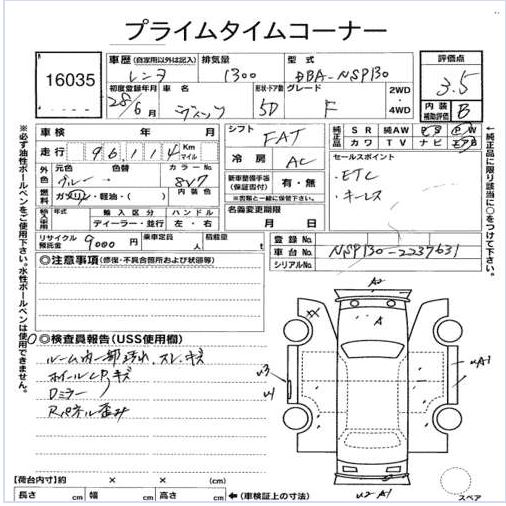 プライムタイムコーナー
16035
車歴 (自家用以外は記入) 排気量 型式
レンタ 1300 DBA-NSP130
評価点
3.5
初度登録年月 車名 形状・ドア数 グレード 2WD ・ 4WD
28/6月 ヴィッツ 5D F
内装補助評価 B
※必ず油性ボールペンをご使用下さい。水性ボールペンは使用できません。
車検 年 月
走行 96,114 Km マイル
外色 元色 色替 カラーNo.
ブルー 8W7
燃料 ガソリン・軽油・( ) 内装色
年式 輸入区分 ハンドル
ディーラー・並行 左・右
リサイクル預託金 9000 円 乗車定員 人 積載量 t
シフト FAT
冷房 AC
新車整備手帳(保証書付) 有・無
※書類と一緒に保管して下さい。
名義変更期限
月 日
純正品 SR 純AW PS PW
カワ TV ナビ エアB
セールスポイント
・ETC
・キーレス
←純正品に限り該当に○をつけて下さい。
登録No.
車台No. NSP130-2237631
シリアルNo.
◎注意事項 (修復・不具合箇所および状態等)
◎検査員報告 (USS使用欄)
ルーム内一部汚れ、スレ、キズ
ホイールCPキズ
Dミラー
Rパネル歪み
A2
XX
A
U3
U1
UA1
U2 A1
【荷台内寸】約 × × (cm)
長さ cm 幅 cm 高さ cm ←(車検証上の寸法)
スペア